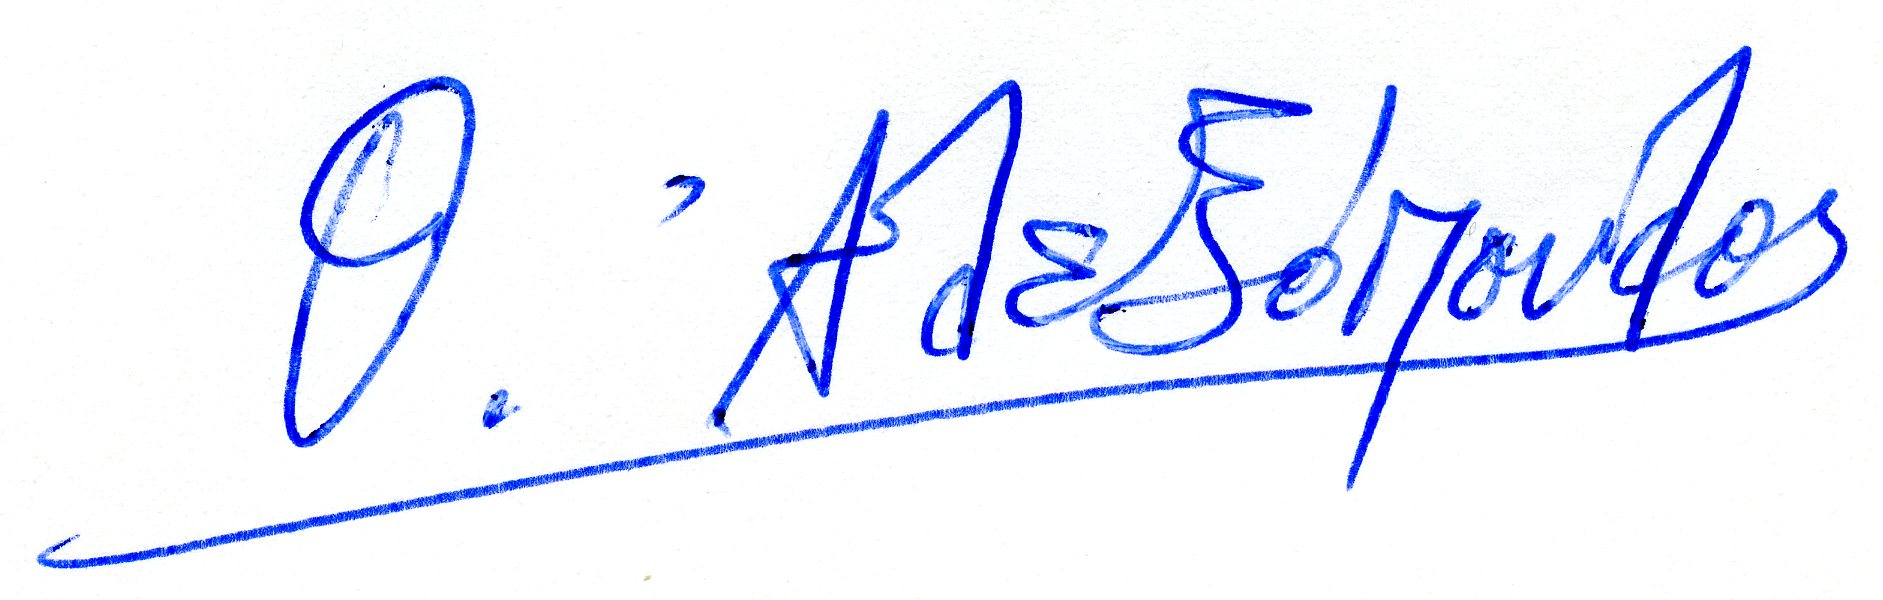 Θ. Ἀλεξόπουλος